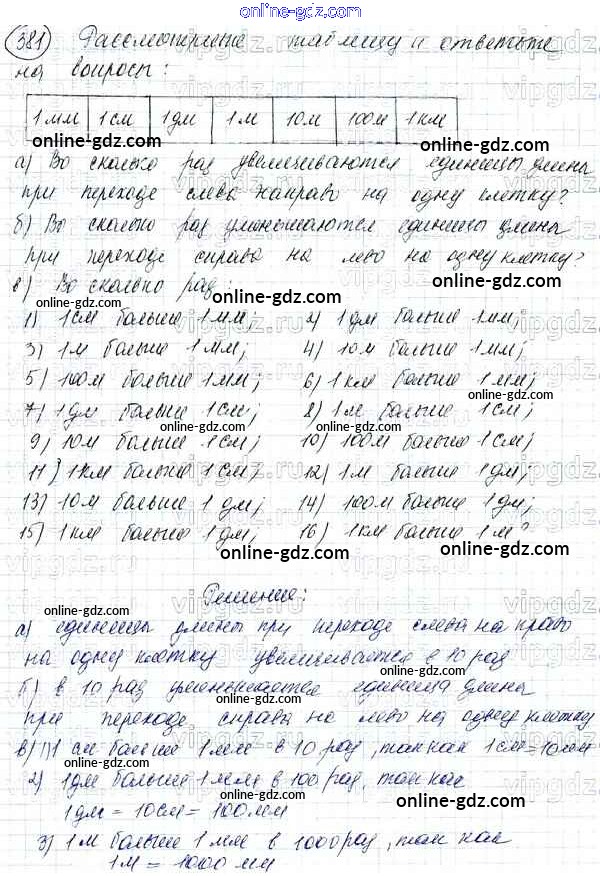 online-gdz.com
381 Рассмотрите таблицу и ответьте
на вопросы:
1 мм 1 см 1 дм 1 м 10 м 100 м 1 км
online-gdz.com online-gdz.com
а) Во сколько раз увеличиваются единицы длины
при переходе слева направо на одну клетку?
online-gdz.com online-gdz.com
б) Во сколько раз уменьшаются единицы длины
при переходе справа на лево на одну клетку?
online-gdz.com
в) Во сколько раз:
online-gdz.com online-gdz.com
1) 1 см больше 1 мм; 2) 1 дм больше 1 мм;
3) 1 м больше 1 мм; 4) 10 м больше 1 мм;
online-gdz.com online-gdz.com
5) 100 м больше 1 мм; 6) 1 км больше 1 мм;
7) 1 дм больше 1 см; 8) 1 м больше 1 см;
online-gdz.com online-gdz.com
9) 10 м больше 1 см; 10) 100 м больше 1 см;
online-gdz.com online-gdz.com
11) 1 км больше 1 см; 12) 1 м больше 1 дм;
13) 10 м больше 1 дм; 14) 100 м больше 1 дм;
online-gdz.com online-gdz.com
15) 1 км больше 1 дм; 16) 1 км больше 1 м?
online-gdz.com online-gdz.com
Решение:
online-gdz.com online-gdz.com
а) единицы длины при переходе слева на право
на одну клетку увеличивается в 10 раз
online-gdz.com online-gdz.com
б) в 10 раз уменьшается единица длины
при переходе справа на лево на одну клетку
online-gdz.com online-gdz.com
в) 1) 1 см больше 1 мм в 10 раз, так как 1 см = 10 мм
2) 1 дм больше 1 мм в 100 раз, так как
online-gdz.com
1 дм = 10 см = 100 мм
online-gdz.com
3) 1 м больше 1 мм в 1000 раз, так как
online-gdz.com
1 м = 1000 мм